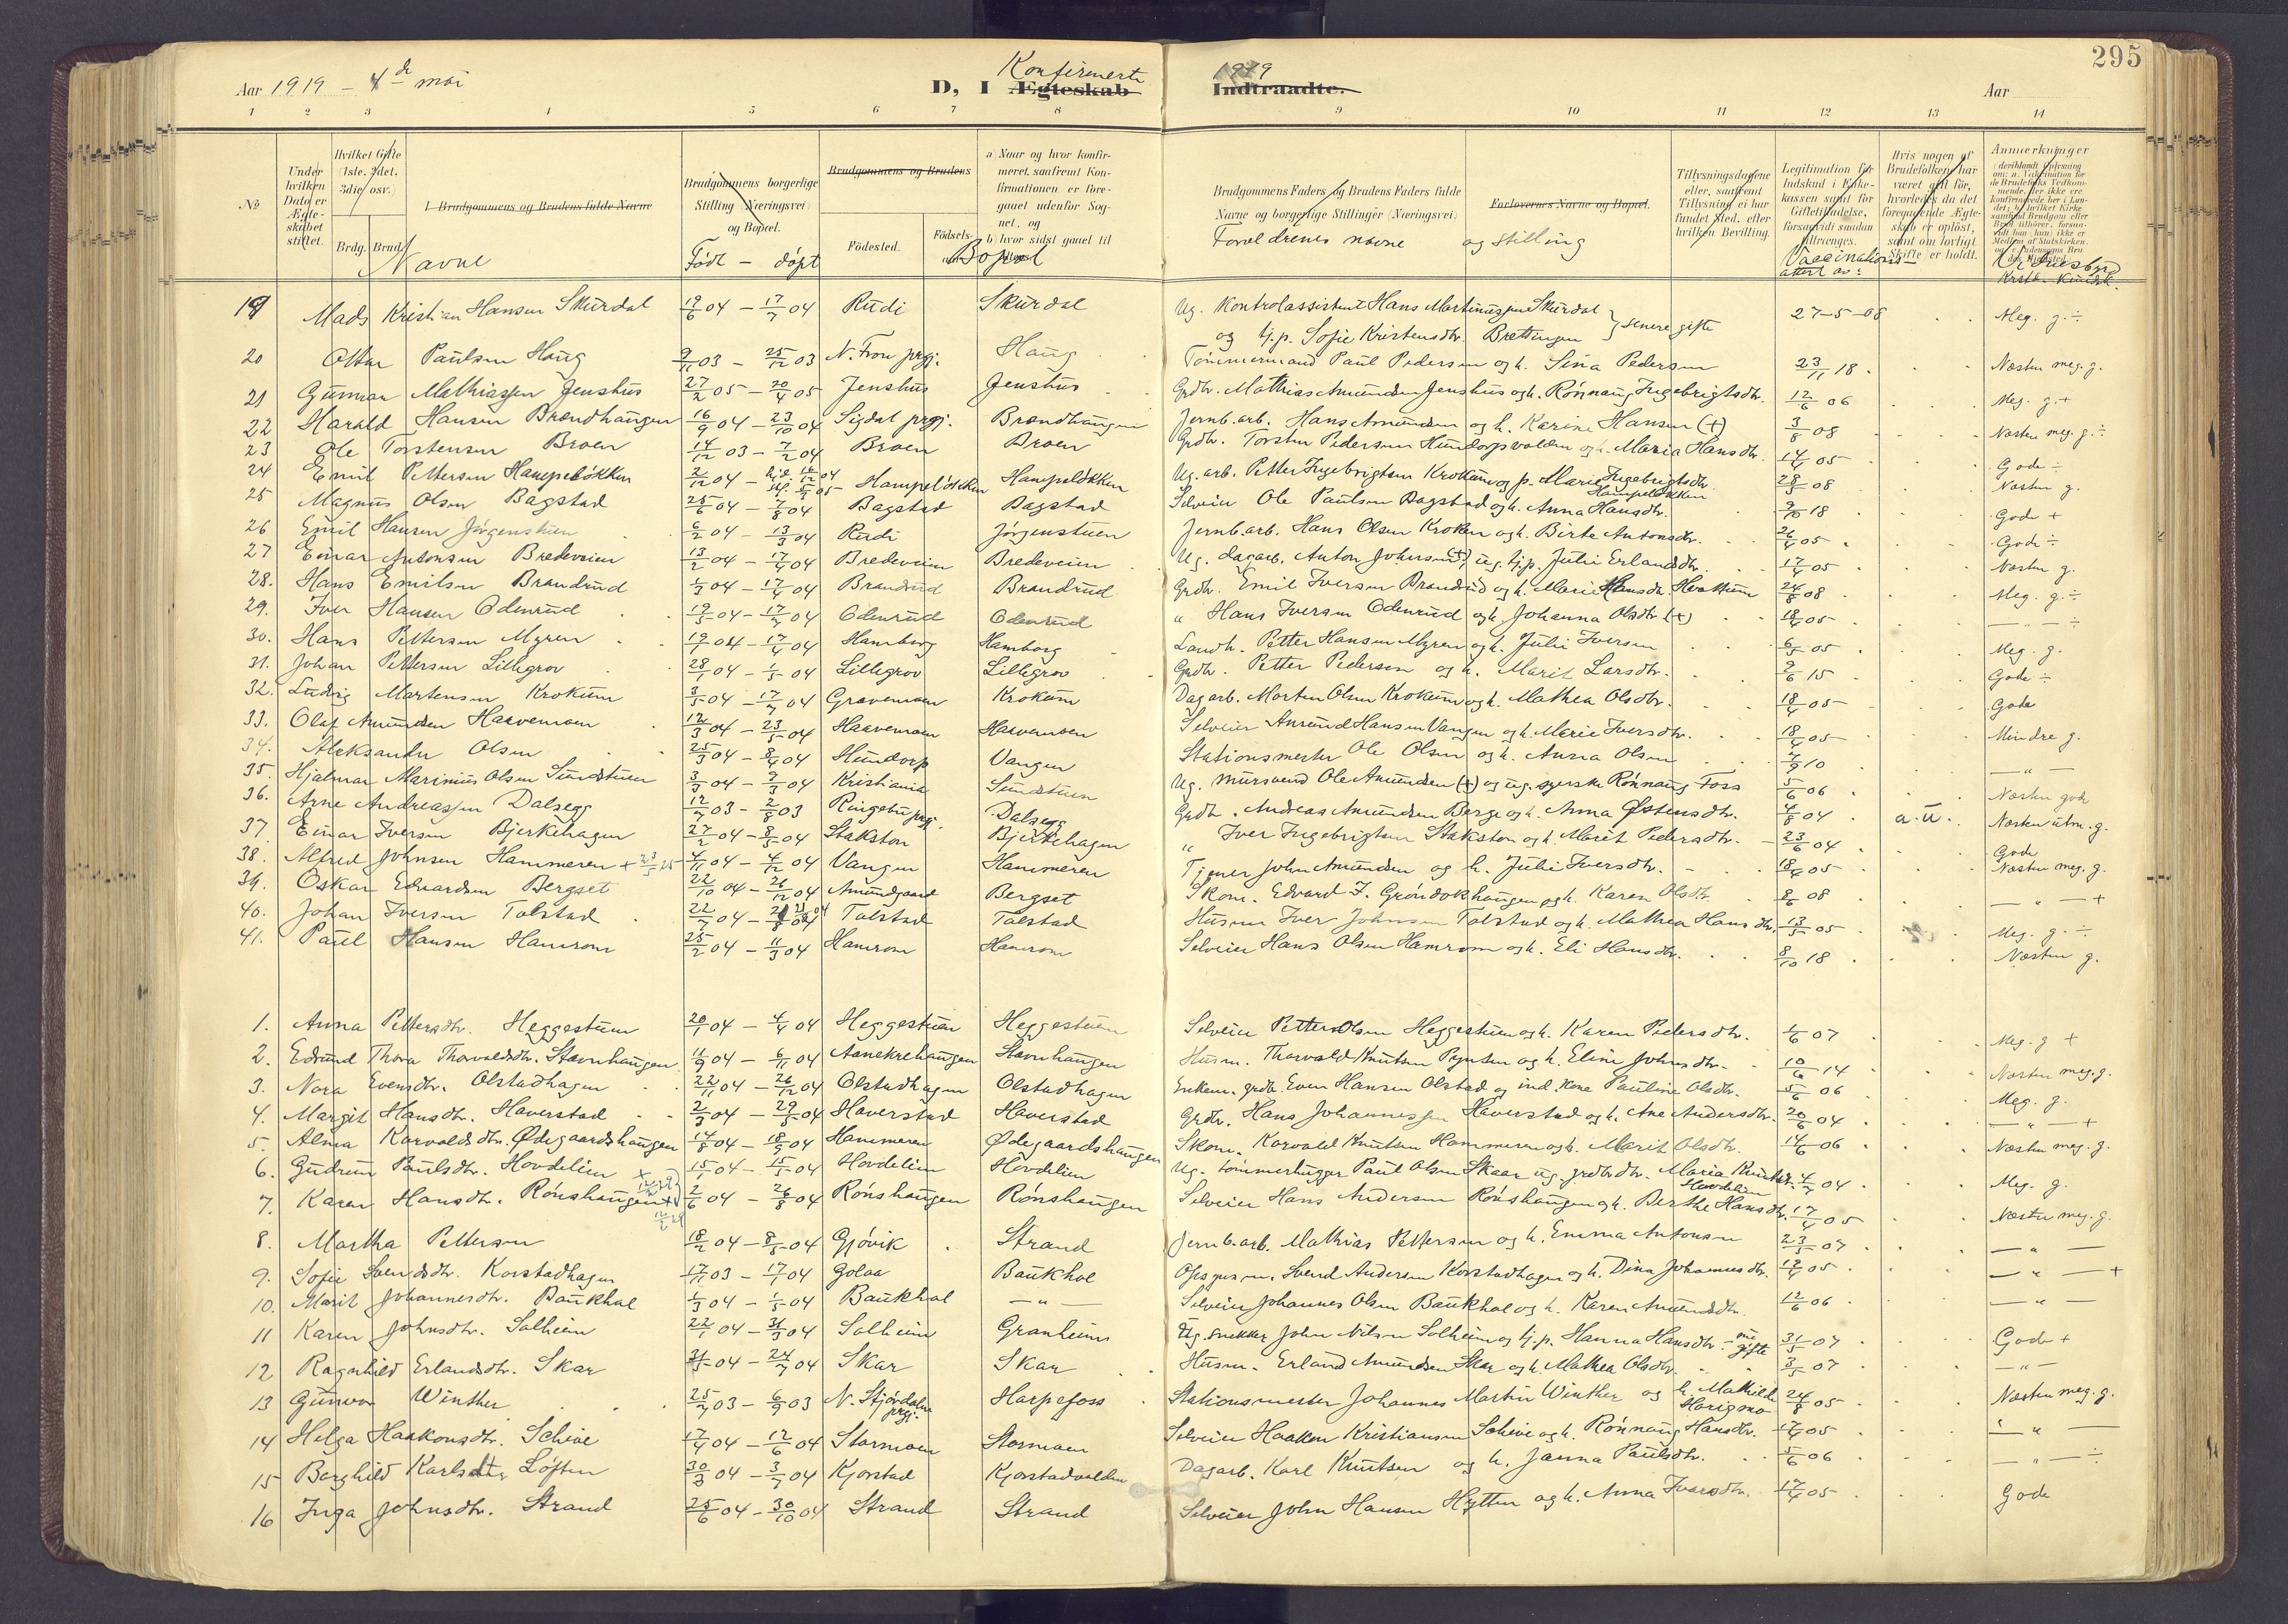 295
Aar 1919 - 4de mai
Konfirmerte
1919
D, I Ægteskab
Indtraadte.
Aar
1 2 3 4 5 6 7 8 9 10 11 12 13 14
No
Under hvilken Dato er Ægte-skabet stiftet.
Hvilket Gifte (1ste, 2det, 3die osv.)
Brdg. Brud.
1. Brudgommens og Brudens fulde Navne
Navne
Brudgommens borgerlige Stilling (Næringsvei) og Bopæl.
Født - døpt
Brudgommens og Brudens
Fødested.
Fødsels-
a) Naar og hvor konfir-meret, saafremt Kon-firmationen er fore-gaaet udenfor Sog-net, og
b) hvor sidst gaaet til
Bopæl
Brudgommens Faders og Brudens Faders fulde Navne og borgerlige Stillinger (Næringsvei)
Foreldrenes navne og stilling
Forlovernes Navne og Bopæl.
Tillysningsdagene eller, saafremt Tillysning ei har fundet Sted, efter hvilken Bevilling.
Legitimation for Indskud i Enke-kassen samt for Giftetilladelse, forsaavidt saadan tiltrænges.
Vaccinations-attest av:
Hvis nogen af Brudefolkene har været gift før, hvorledes da det foregaaende Ægte-skab er opløst, samt om lovligt Skifte er holdt.
Anmerkninger
19 Mads Kristian Hansen Skurdal 19/6 04 - 17/7 04 Rudi Skurdal Ug. Kontrolassistent Hans Martinussen Skurdal og tj.p. Sofie Kristensdtr. Brettingen } senere gifte 27-5-08 Meg. g. ÷
20 Ottar Paulsen Haug 9/11 03 - 25/12 03 N. Fron prgj. Haug Tømmermand Paul Pedersen og h. Sina Pedersen 23/11 18 Næsten meg. g.
21 Gunnar Mathiassen Jenshus 27/2 05 - 20/4 05 Jenshus Jenshus Grdbr. Mathias Amundsen Jenshus og h. Rønnaug Ingebrigtsdtr. 12/6 06 Meg. g. +
22 Harald Hansen Brændhaugen 16/9 04 - 23/10 04 Sigdal prgj. Brændhaugen Jernb.arb. Hans Amundsen og h. Karine Hansen (+) 3/8 08 Næsten meg. g. ÷
23 Ole Torstensen Broen 14/12 03 - 7/2 04 Broen Broen Grdbr. Torsten Pedersen Hundorpvolden og h. Maria Hansdtr. 14/4 05 Gode ÷
24 Emil Pettersen Hampeløkken 2/12 04 - Hj.d. 16/12 04 Hampeløkken Hampeløkken Ug. arb. Petter Ingebrigtsen Krokum og p. Marie Ingebrigtsdtr. Hampeløkken 28/5 08 Næsten g.
25 Magnus Olsen Bagstad 25/6 04 - 7/8 04 Bagstad Bagstad Selveier Ole Paulsen Bagstad og h. Anna Hansdtr. 9/10 18 Gode +
26 Emil Hansen Jørgenstuen 6/2 04 - 13/3 04 Rudi Jørgenstuen Jernb.arb. Hans Olsen Kroken og h. Birte Antonsdtr. 26/4 05 Gode ÷
27 Einar Antonsen Bredeveien 13/2 04 - 17/4 04 Bredeveien Bredeveien Ug. dagarb. Anton Johnsen (+), ug. tj.p. Juli Erlandsdtr. 17/4 05 Næsten g.
28. Hans Emilsen Brandrud 1/3 04 - 17/4 04 Brandrud Brandrud Grdbr. Emil Iversen Brandrud og h. Marie Hansdtr. Hvattum 24/8 08 Meg. g. ÷
29. Iver Hansen Odenrud 19/3 04 - 17/7 04 Odenrud Odenrud " Hans Iversen Odenrud og h. Johanna Olsdtr. (+) 18/4 05 — " — ÷
30. Hans Pettersen Myren 19/1 04 - 17/4 04 Hamborg Hamborg Landh. Petter Hansen Myren og h. Juli Iversen 6/5 05 Meg. g.
31. Johan Pettersen Lillegrov 28/1 04 - 1/5 04 Lillegrov Lillegrov Grdbr. Petter Pedersen og h. Marit Larsdtr. 2/6 15 Gode ÷
32. Ludvig Martensen Krokum 3/5 04 - 17/7 04 Gravemoen Krokum Dagarb. Morten Olsen Krokum og h. Mathea Olsdtr. 18/4 05 Gode
33. Olaf Amundsen Haavemoen 12/3 04 - 23/5 04 Haavemoen Haavemoen Selveier Amund Hansen Vangen og h. Marie Iversdtr. 18/4 05 Mindre g.
34. Aleksander Olsen 25/3 04 - 8/4 04 Hundorp Vangen Stationsmester Ole Olsen og h. Anna Olsen 4/9 10 — " —
35. Hjalmar Marinius Olsen Sundstuen 3/3 04 - 7/3 04 Kristiania Sundstuen Ug. mursvend Ole Amundsen (+) og ug. syerske Rønnaug Foss 5/6 06 Næsten gode
36. Arne Andreassen Dalsegg 12/7 03 - 2/8 03 Ringebu prgj. Dalsegg Grdb. Andreas Amundsen Berge og h. Anna Østensdtr. 4/8 04 a.u. Næsten utm. g.
37 Einar Iversen Bjerkehagen 27/2 04 - 8/5 04 Stakston Bjerkehagen " Iver Ingebrigtsen Stakston og h. Marit Pedersdtr. 23/6 04 Gode
38. Alfred Johnsen Hammeren + 23/5 25 4/11 04 - 4/12 04 Vangen Hammeren Tjener John Amundsen og h. Juli Iversdtr. 18/4 05 Næsten meg. g.
39. Oskar Edvardsen Bergset 22/10 04 - 26/12 04 Amundgaard Bergset Skom. Edvard J. Grøndokhaugen og h. Karen Olsdtr. 8/6 08 — " — +
40. Johan Iversen Tolstad 22/7 04 - 21/8 04 Tolstad Tolstad Husm. Iver Johnsen Tolstad og h. Mathea Hansdtr. 13/5 05 Meg. g. ÷
41. Paul Hansen Hamrom 25/2 04 - 11/3 04 Hamrom Hamrom Selveier Hans Olsen Hamrom og h. Eli Hansdtr. 8/10 18 Næsten g.
1. Anna Pettersdtr. Heggestuen 20/1 04 - 4/4 04 Heggestuen Heggestuen Selveier Petter Olsen Heggestuen og h. Karen Pedersdtr. 4/6 07 Meg. g +
2. Edrund Thora Thorvaldsdtr. Stavnhaugen 11/9 04 - 6/11 04 Aanekrehaugen Stavnhaugen Husm. Thorvald Knutsen Pynten og h. Eline Johnsdtr. 10/6 14 Næsten meg. g.
3. Nora Evensdtr. Olstadhagen 22/11 04 - 26/12 04 Olstadhagen Olstadhagen Enkem. grdbr. Even Hansen Olstad og ind. kone Pauline Olsdtr. 5/6 06 Meg. g.
4. Margit Hansdtr. Haverstad 2/3 04 - 29/5 04 Haverstad Haverstad Grdbr. Hans Johannessen Haverstad og h. Ane Andersdtr. 20/6 04 — " — +
5. Alma Korvaldsdtr. Ødegaardshaugen 14/8 04 - 18/9 04 Hammeren Ødegaardshaugen Skom. Korvald Knutsen Hammeren og h. Marit Olsdtr. 14/6 06 Næsten meg. g.
6. Gudrun Paulsdtr. Hovdelien 15/1 04 - 15/5 04 Hovdelien Hovdelien Ug. tømmerhugger Paul Olsen Skaar ug. grdbrdtr. Maria Knutsdtr. Hovdelien 4/7 04 Meg. g.
7. Karen Hansdtr. Rønshaugen 2/6 04 - 26/8 04 Rønshaugen Rønshaugen Selveier Hans Andersen Rønshaugen og h. Berthe Hansdtr. 17/4 05 Næsten meg. g.
8. Martha Pettersen 18/2 04 - 8/5 04 Gjøvik Strand Jernb.arb. Mathias Pettersen og h. Emma Antonsen 23/5 07 — " —
9. Sofie Svendsdtr. Korstadhagen 17/11 03 - 17/1 04 Golaa Baukhol Opsynsm. Svend Andersen Korstadhagen og h. Dina Johannesdtr. 12/4 05 — " — +
10. Marit Johannesdtr. Baukhol 1/3 04 - 1/5 04 Baukhol — " — Selveier Johannes Olsen Baukhol og h. Karen Amundsdtr. 12/6 06 — " —
11 Karen Johnsdtr. Solheim 22/1 04 - 31/3 04 Solheim Granheim Ug. snekker John Nilsen Solheim og tj.p. Hanna Hansdtr. - nu gifte 31/5 07 Gode +
12 Ragnhild Erlandsdtr. Skar 31/5 04 - 24/7 04 Skar Skar Husm. Erland Amundsen Skar og h. Mathea Olsdtr. 3/5 07 — " —
13 Gunvor Winther 25/7 03 - 6/9 03 N. Stjørdalen prgj. Harpefoss Stationsmester Johannes Martin Winther og h. Mathilde Horigmo 24/8 05 Næsten meg. g.
14 Helga Haakonsdtr. Scheie 17/4 04 - 12/6 04 Stormoen Stormoen Selveier Haakon Kristiansen Scheie og h. Rønnaug Hansdtr. 17/4 05 — " —
15 Borghild Karlsdtr. Løften 30/3 04 - 3/7 04 Kjorstad Kjorstadvolden Dagarb. Karl Knutsen og h. Janna Paulsdtr. 5/6 06 — " — ÷
16 Inga Johnsdtr. Strand 25/6 04 - 30/10 04 Strand Strand Selveier John Hansen Hytten og h. Anna Ivarsdtr. 17/4 05 Gode